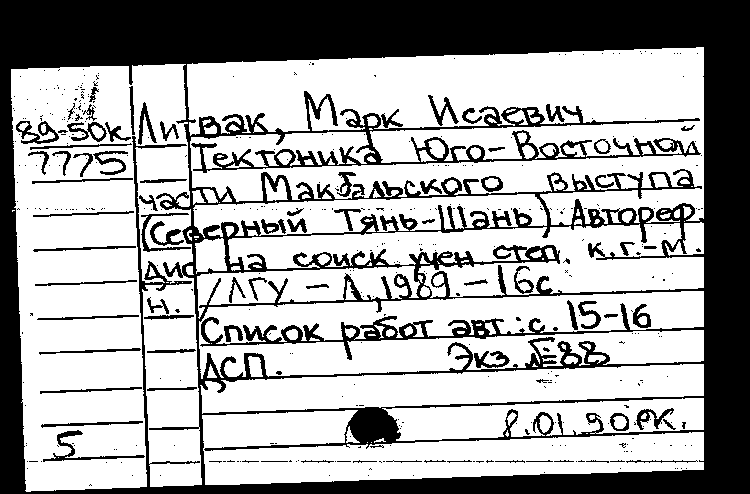 89-50к Литвак, Марк Исаевич.
7775 Тектоника Юго-Восточной
части Макбальского выступа
(Северный Тянь-Шань). Автореф.
дис. на соиск. учен. степ. к.г.-м.
н. /ЛГУ. - Л., 1989. - 16с.
Список работ авт.: с. 15-16
ДСП. Экз. №88
8.01.90 РК.
5